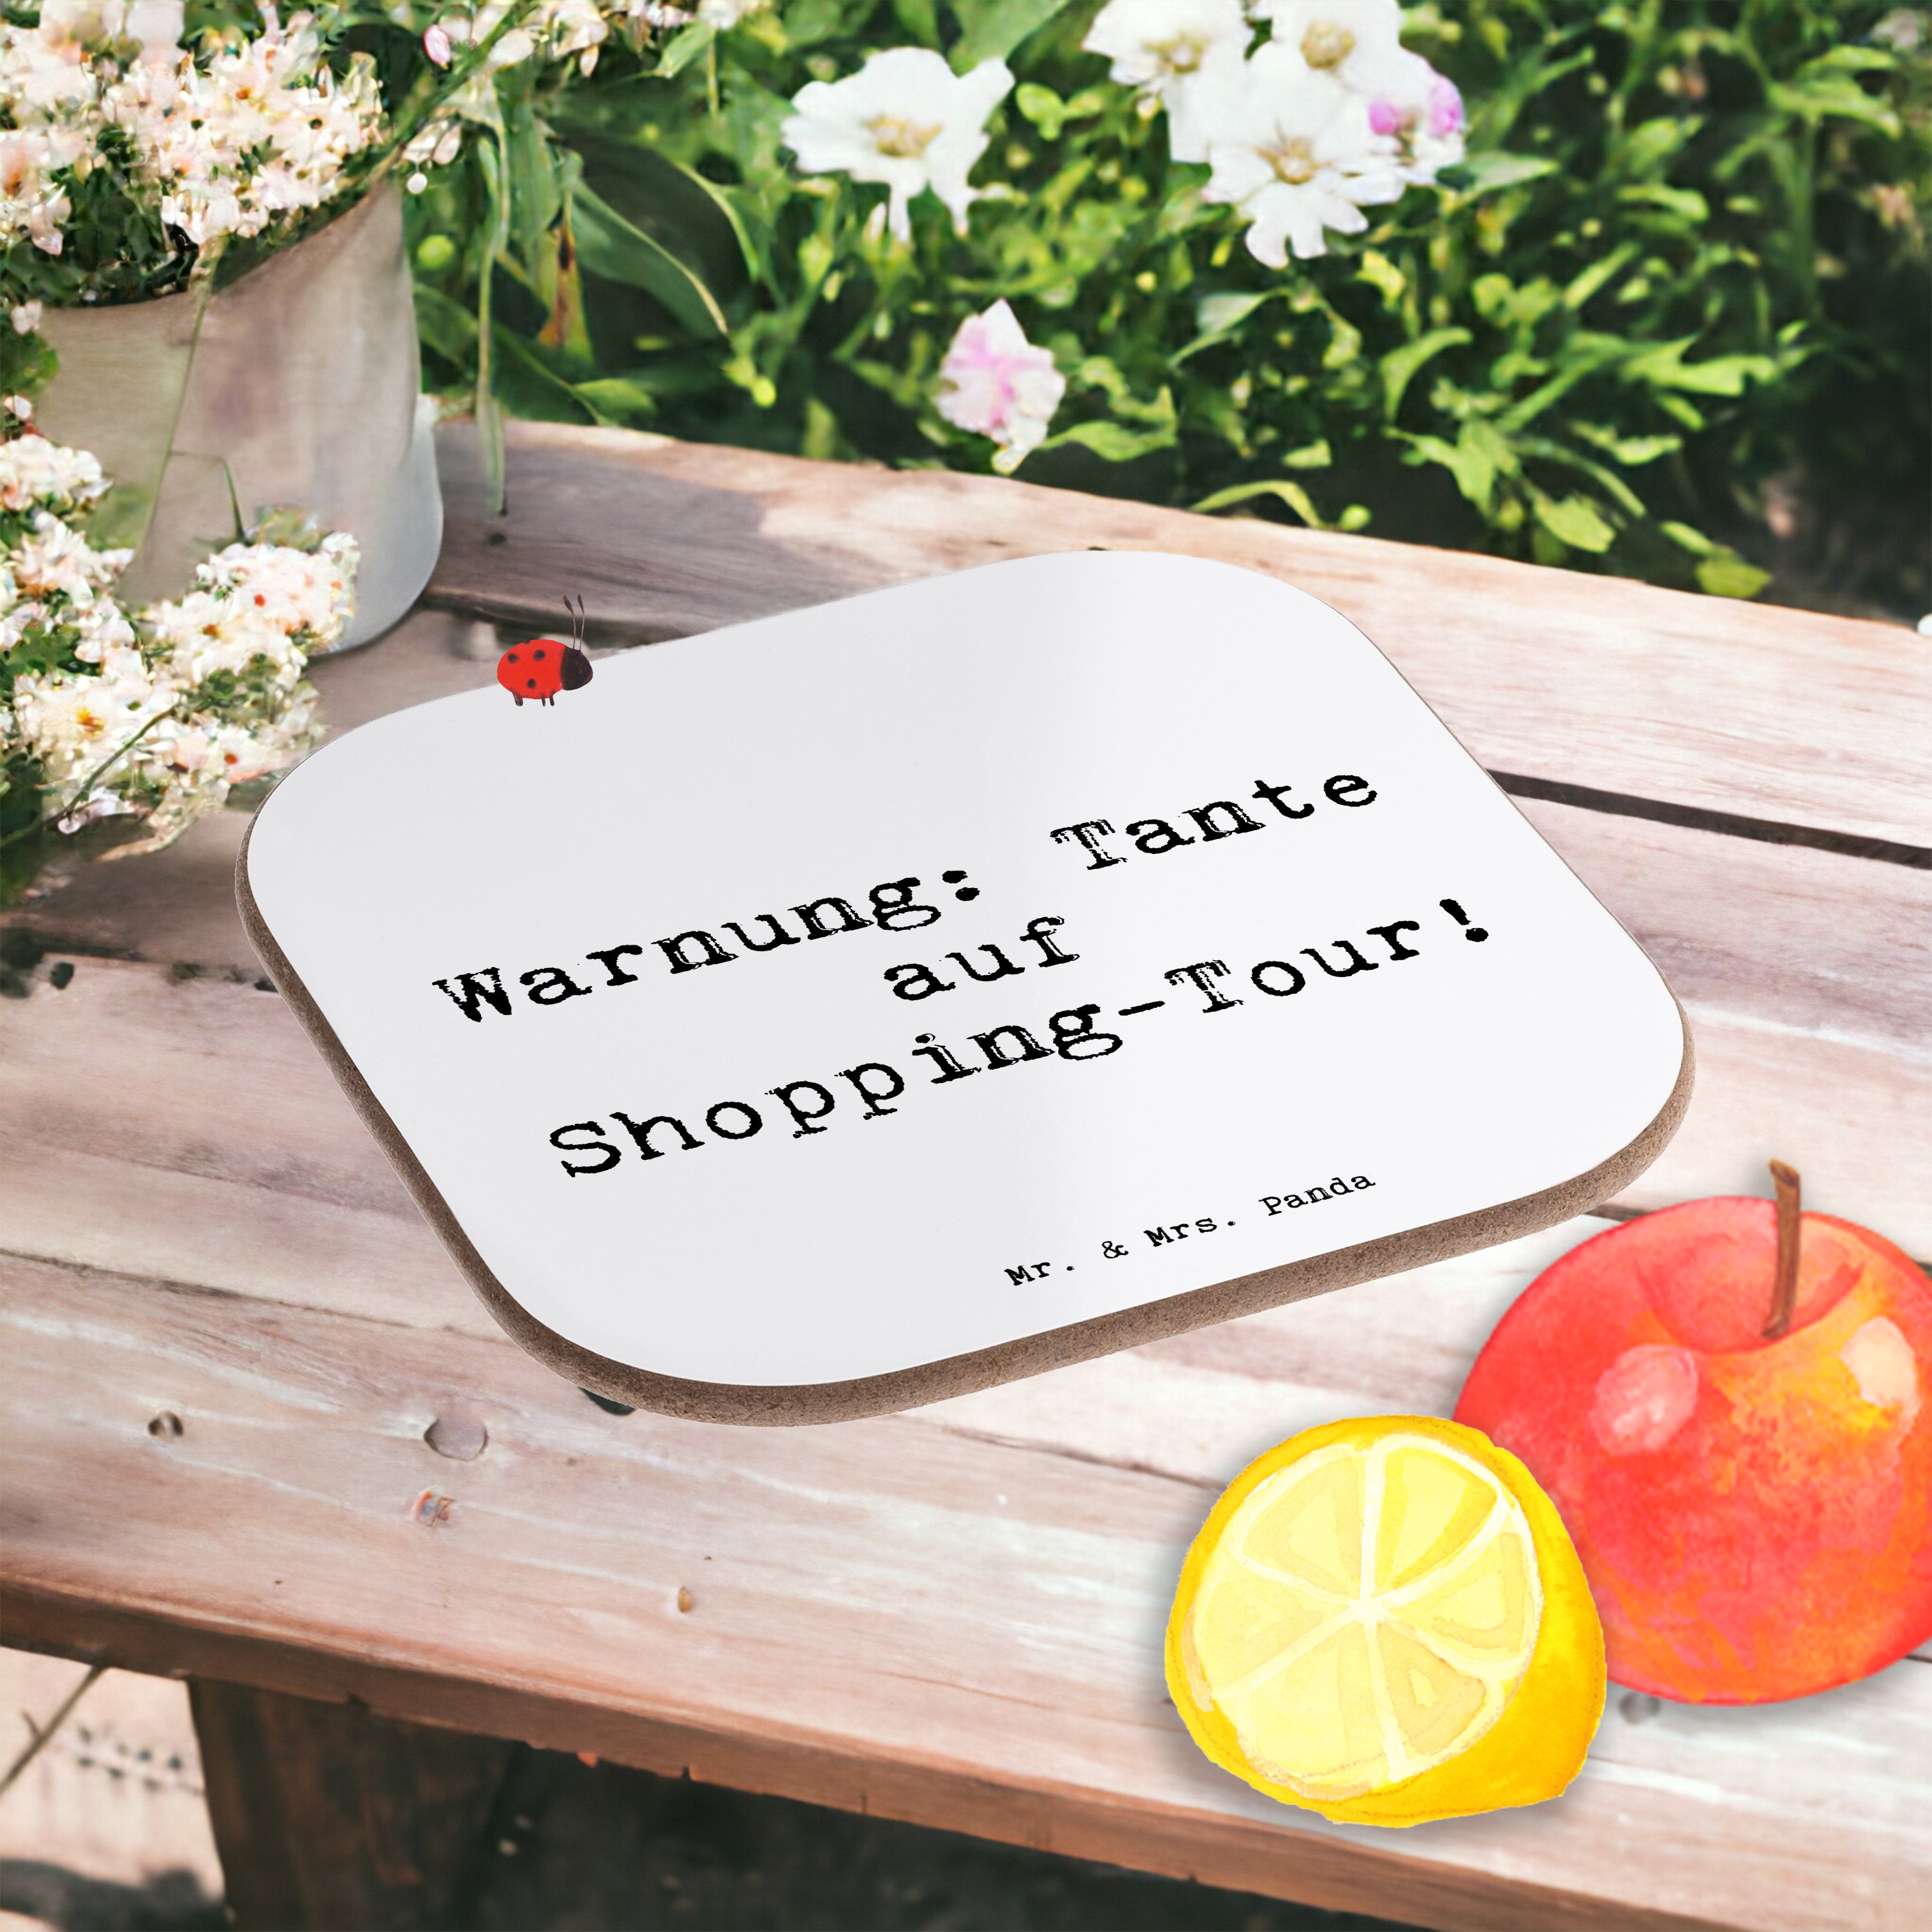 Warnung: Tante
auf
Shopping-Tour!
Mr. & Mrs. Panda